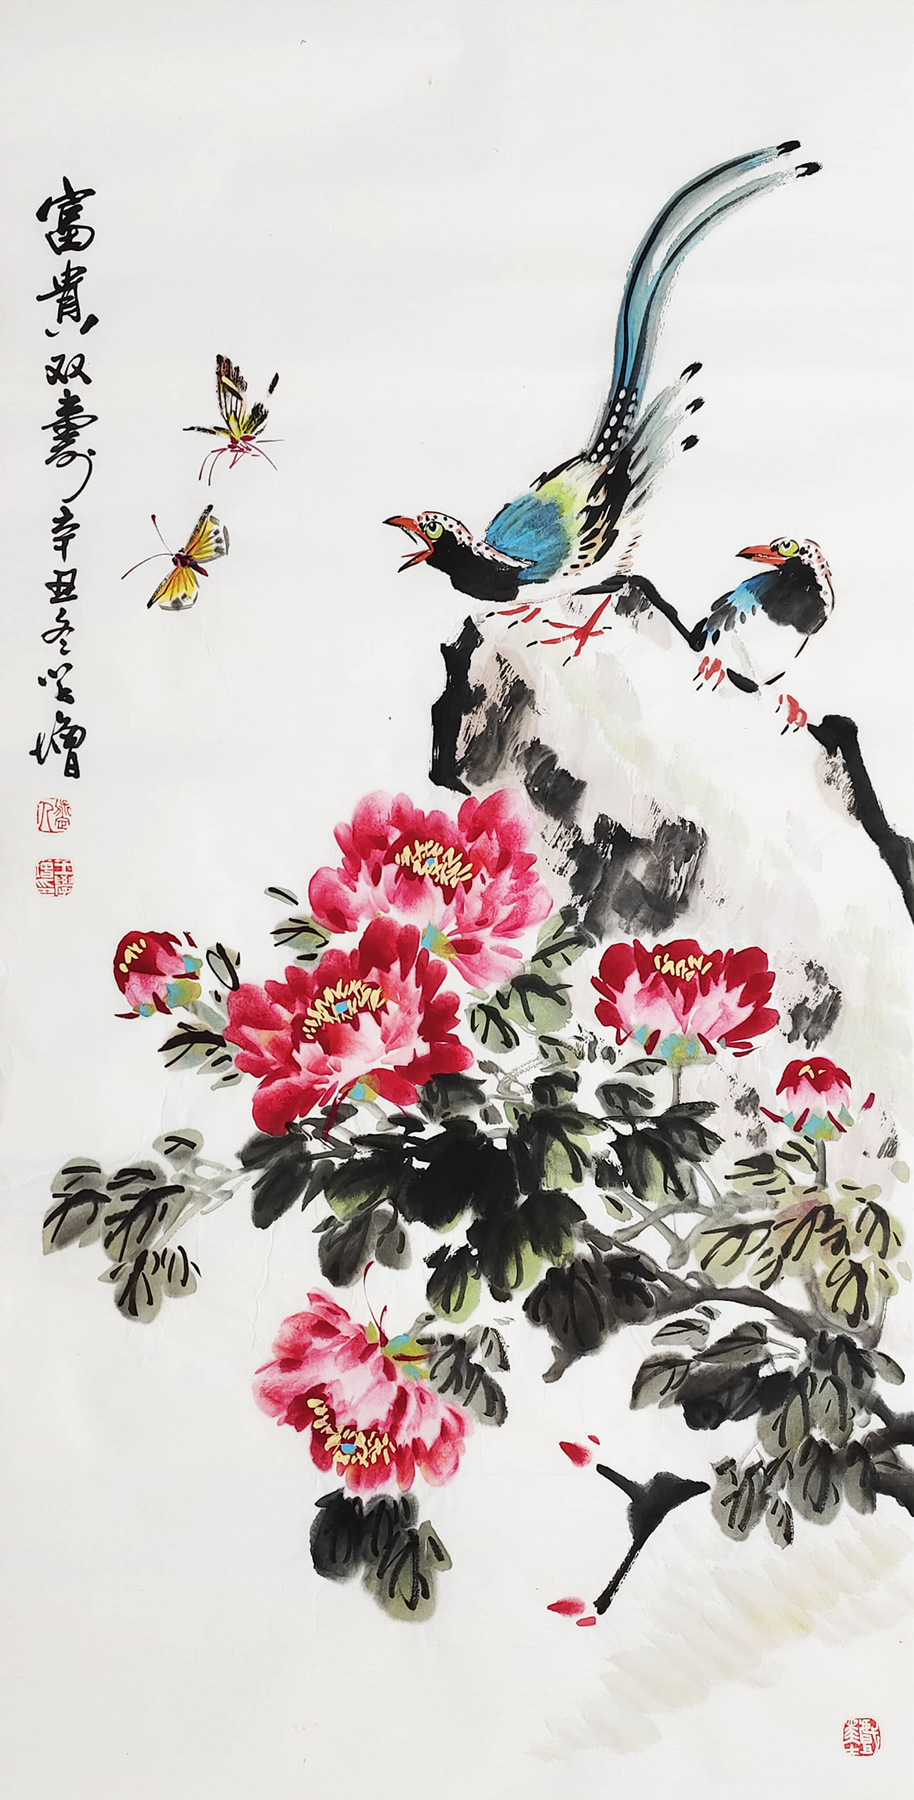 富貴双壽辛丑冬学增